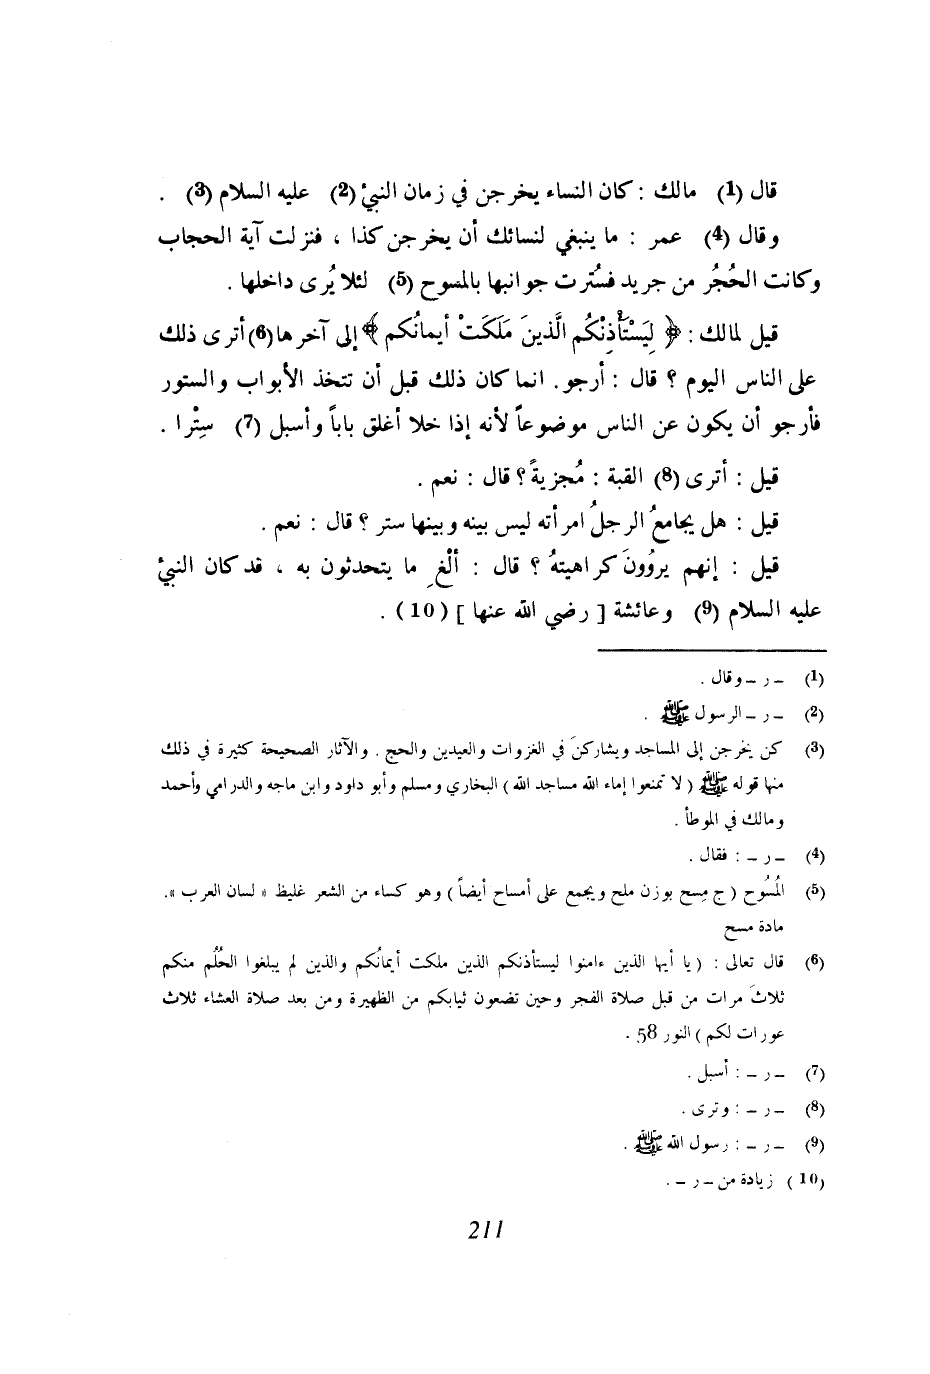 قال (1) مالك : كان النساء يخرجن في زمان النبيْ (2) عليه السلام (3) .
وقال (4) عمر : ما ينبغي لنسائك أن يخرجن كذا ، فنزلت آية الحجاب
وكانت الحُجُر من جريد فسُترت جوانبها بالمسوح (5) لئلا يُرى داخلها .
قيل لمالك : ﴿ لِيَسْتَأْذِنْكُم الَّذينَ مَلَكَتْ أيمانُكم ﴾ إلى آخرها (6) أترى ذلك
على الناس اليوم ؟ قال : أرجو . انما كان ذلك قبل أن تتخذ الأبواب والستور
فأرجو أن يكون عن الناس موضوعاً لأنه إذا خلا أغلق باباً وأسبل (7) سِتْرا .
قيل : أترى (8) القبة : مُجزيةً ؟ قال : نعم .
قيل : هل يجامعُ الرجلُ امرأته ليس بينه وبينها ستر ؟ قال : نعم .
قيل : إنهم يروُونَ كراهيتهُ ؟ قال : ألْغِ ما يتحدثون به ، قد كان النبيْ
عليه السلام (9) وعائشة [ رضي الله عنها ] (10) .
(1) – ر – وقال .
(2) – ر – الرسول ﷺ .
(3) كن يخرجن إلى المساجد ويشاركنَ في الغزوات والعيدين والحج . والآثار الصحيحة كثيرة في ذلك
منها قوله ﷺ ( لا تمنعوا إماء الله مساجد الله ) البخاري ومسلم وأبو داود وابن ماجه والدرامي وأحمد
ومالك في الموطأ .
(4) – ر – : فقال .
(5) المُسُوح ( ج مِسح بوزن ملح ويجمع على أمساح أيضاً ) وهو كساء من الشعر غليظ « لسان العرب ».
مادة مسح
(6) قال تعالى : ( يا أيها الذين ءامنوا ليستأذنكم الذين ملكت أيمانُكم والذين لم يبلغوا الحُلُم منكم
ثلاثَ مرات من قبل صلاة الفجر وحين تضعون ثيابكم من الظهيرة ومن بعد صلاة العشاء ثلاث
عورات لكم ) النور 58 .
(7) – ر – : أسبل .
(8) – ر – : وترى .
(9) – ر – : رسول الله ﷺ .
(10) زيادة من – ر – .
211